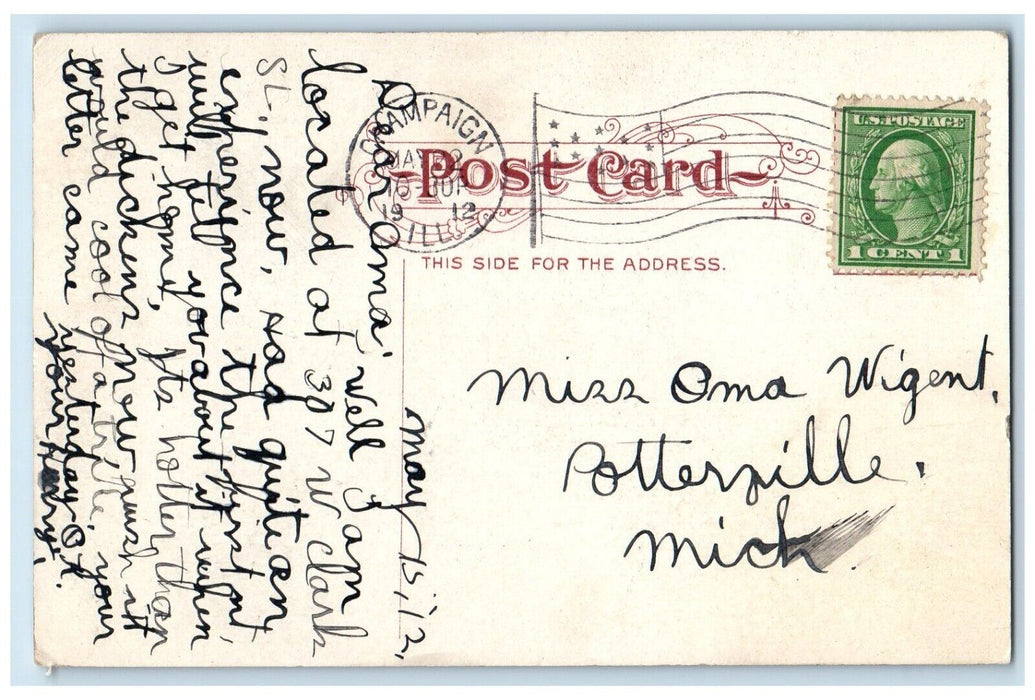 CHAMPAIGN
MAY
1912
ILL.
Post Card
THIS SIDE FOR THE ADDRESS.
U.S. POSTAGE
1 CENT 1
Miss Oma Wigent,
Potterville.
Mich.
May 15, '12,
Dear Oma; Well I am
located at 307 W Clark
St., now, had quite an
experience the first out
will tell you about it when
I get home, its hotter than
the dickens now, wish it
would cool off a trifle, your
letter came
yesterday O.K.
your Henry.